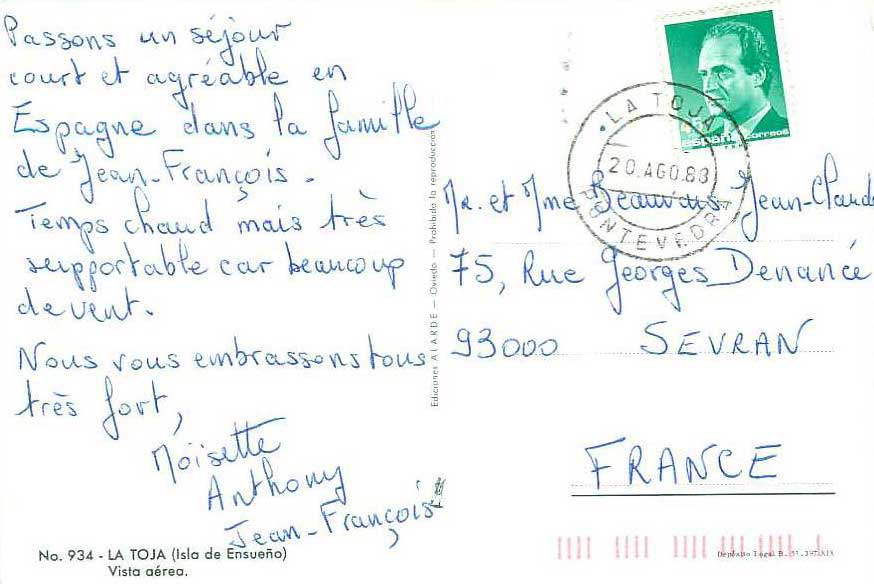 Passons un séjour
court et agréable en
Espagne dans la famille
de Jean-François.
Temps chaud mais très
supportable car beaucoup
de vent.
Nous vous embrassons tous
très fort,
Moisette
Anthony
Jean-François
No. 934 - LA TOJA (Isla de Ensueño)
Vista aérea.
Ediciones ALARDE — Oviedo — Prohibida la reproducción
España correos
LA TOJA
20.AGO.88
PONTEVEDRA
Mr. et Mme Beauvais Jean-Claude
75, Rue Georges Denancé
93000 SEVRAN
FRANCE
Depósito Legal B.